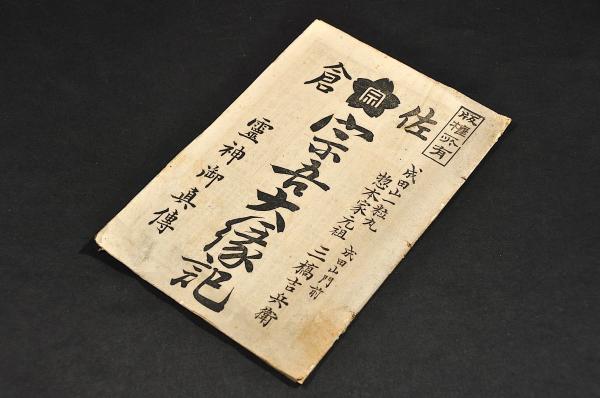 版權所有
成田山一粒丸
惣本家元祖 成田山門前 三橋吉兵衛
佐倉
宗
宗吾大縁記
霊神御真傳